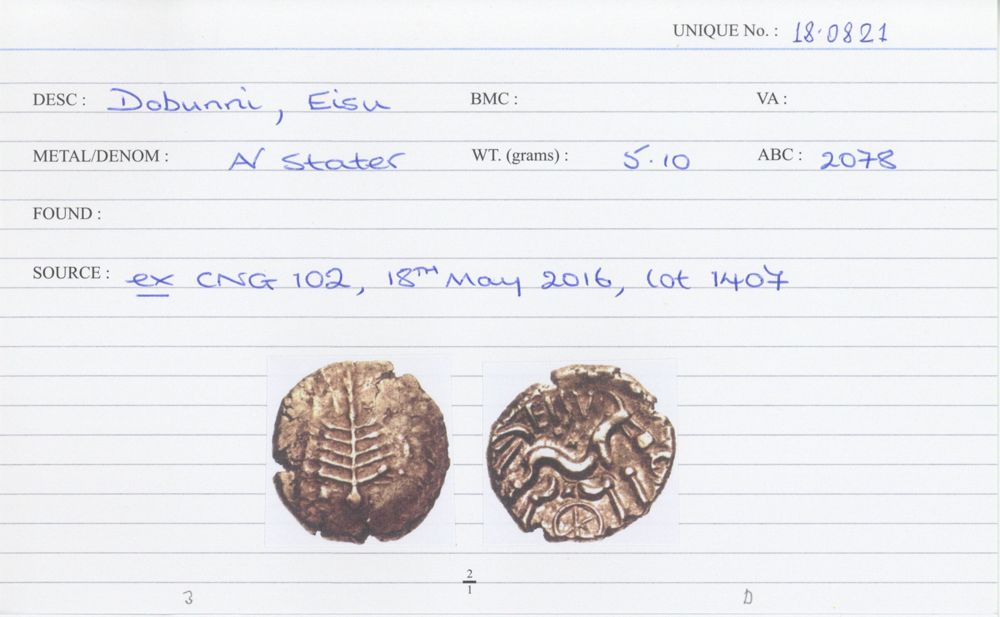 UNIQUE No. : 18·0821
DESC : Dobunni, Eisu BMC : VA :
METAL/DENOM : AV Stater WT. (grams) : 5.10 ABC : 2078
FOUND :
SOURCE : ex CNG 102, 18TH May 2016, lot 1407
EISV
2
1
3 D